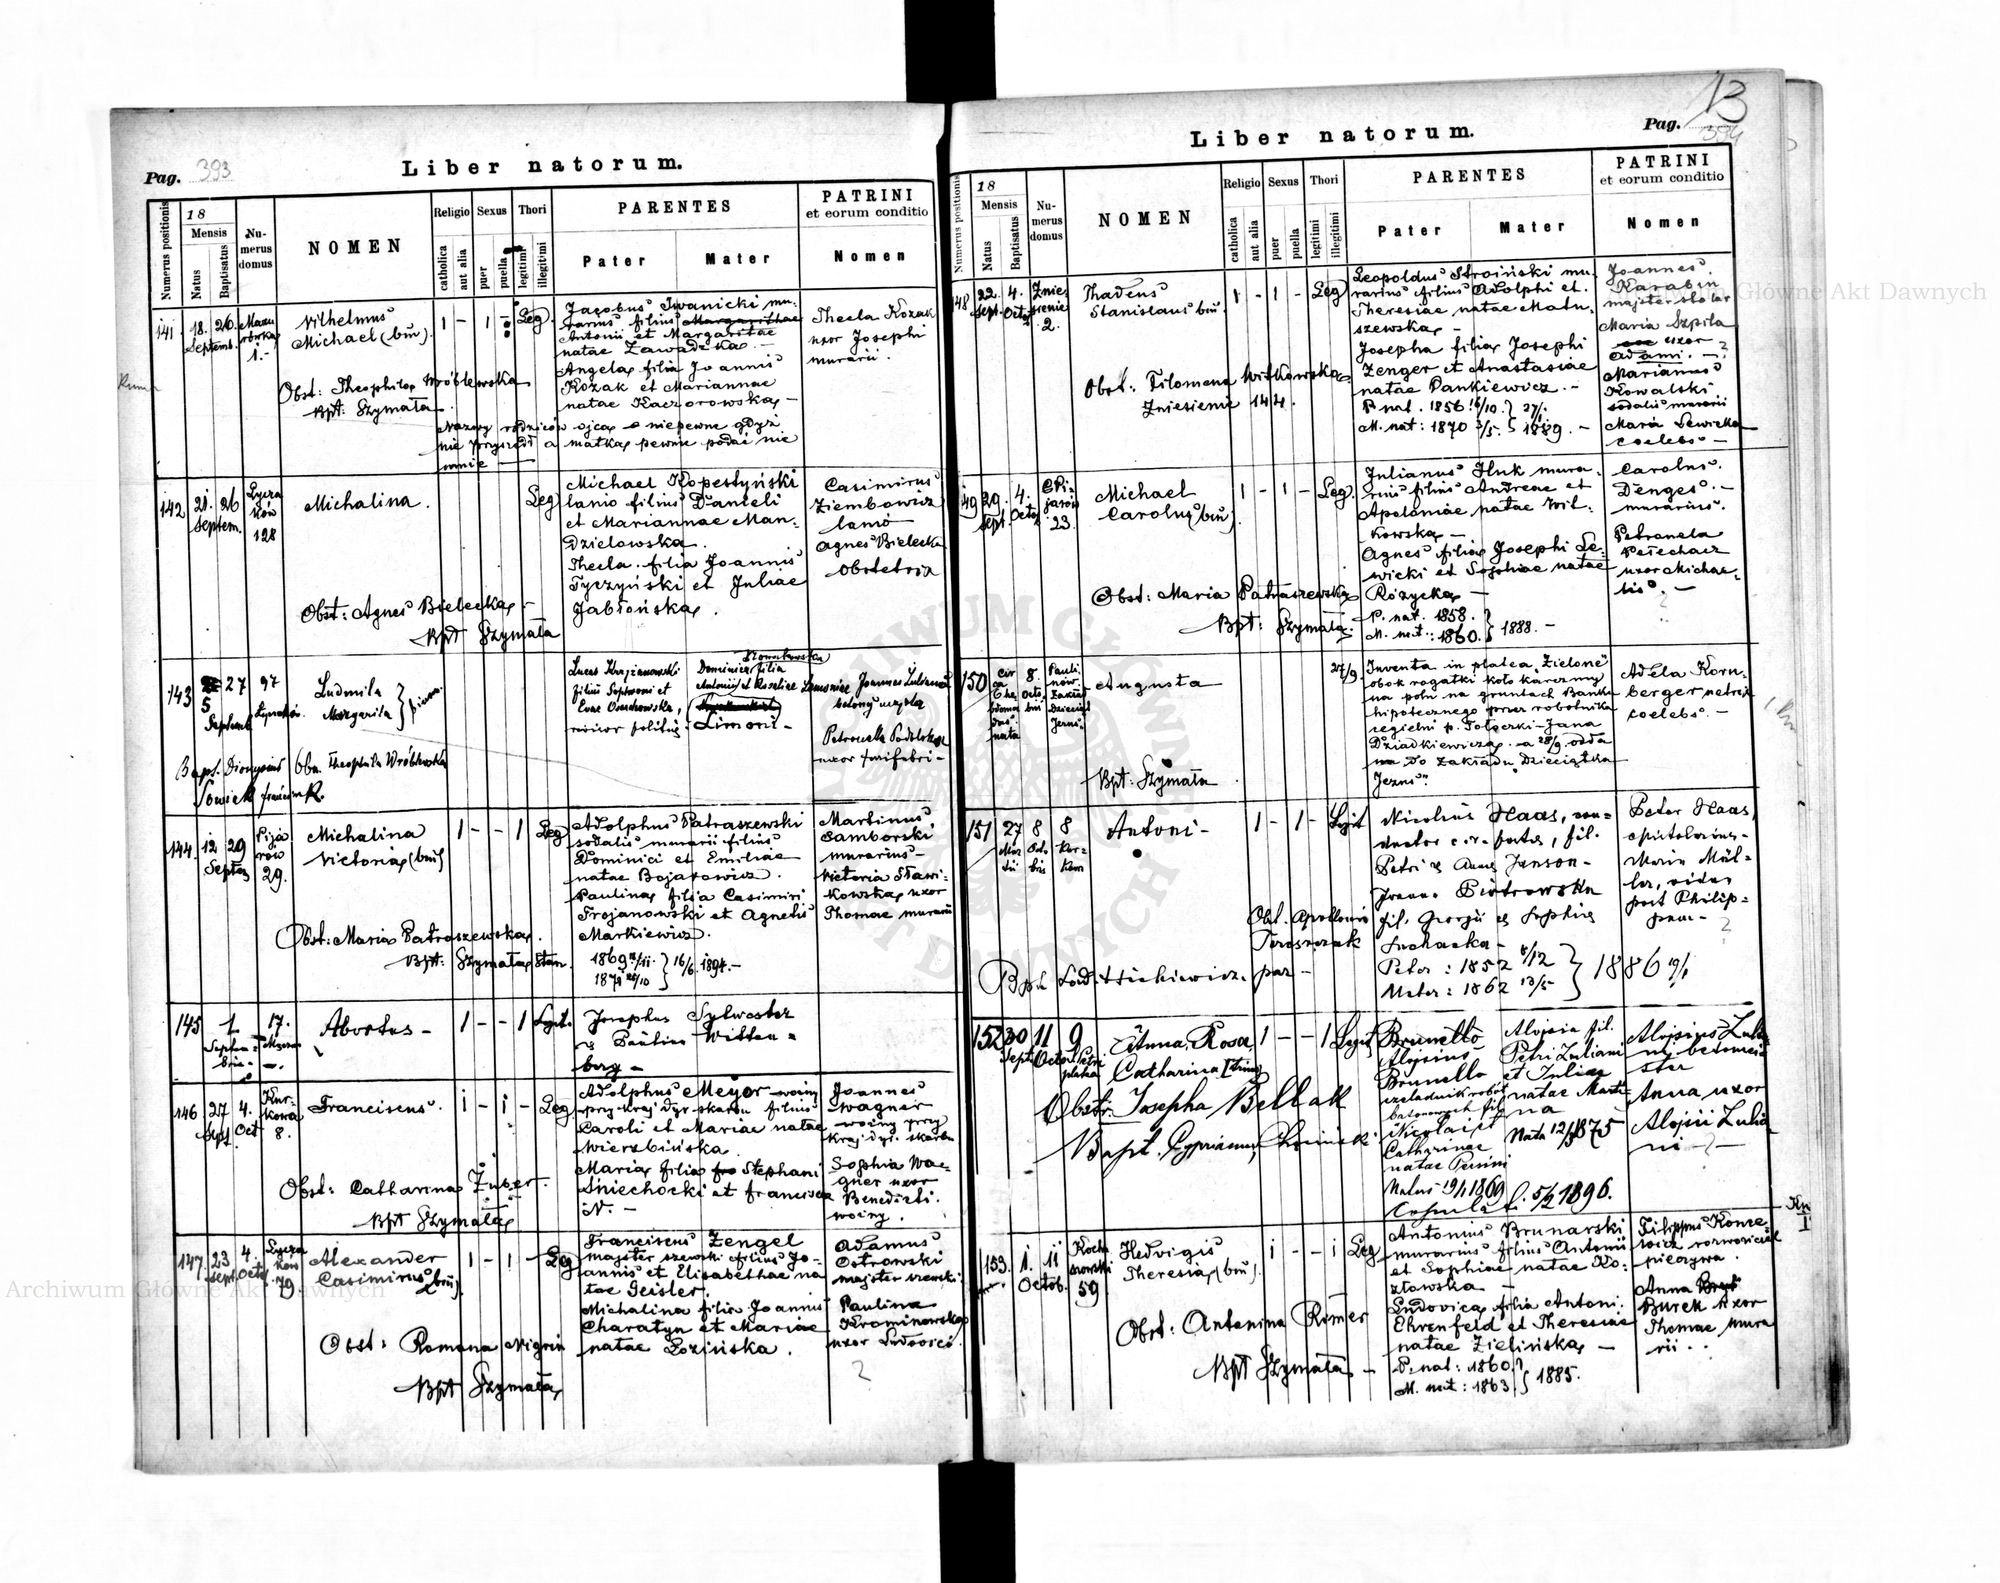 Pag. 393
Liber natorum.
Numerus positionis
18
Mensis
Natus
Baptisatus
Numerus domus
NOMEN
Religio
catholica
aut alia
Sexus
puer
puella
Thori
legitimi
illegitimi
PARENTES
Pater
Mater
PATRINI
et eorum conditio
Nomen
141
18. 26.
Septemb.
1.-
Vilhelmus
Michael (bin.)
1 - 1 - Leg.
Obst: Theophila Wróblewska
Bpt: Szymała.
Jacobus Iwanicki mu-
rarius filius Margarithae
Antonii et Margaritae
natae Zawadzka. -
Angela filia Joannis
Kozak et Mariannae
natae Kaczorowska -
Thecla Kozak
uxor Josephi
murarii.
Nazwy rodziców ojca niepewne gdyż
nie przyszedł a matka pewnie podać nie
umie
142
21. 26
Septem.
Lycza
ków
128
Michalina.
Leg
Obst: Agnes Bielecka -
Bpt Szymała
Michael Kopestyński
lanio filius Danieli
et Mariannae Man-
dzielowska.
Thecla filia Joannis
Tyczyński et Juliae
Jabłońska.
Casimirus
Ziembowicz
lanio
Agnes Bielecka
Obstetrix
143
27
5
Septemb
97
Łyczaków
Ludmila
Margarita
Bapt. Dionysius
Obs. Theophila Wróblewska
Lucas Krzyzanowski
filius Sophroni et
Evae Osuchowska,
Nowakowska
Dominica filia
Antonii et Rosaliae
Limoni -
Petronela Podolska
144.
12 29
Septem
Pija
rów
29.
Michalina
Victoria (bin)
1 - - 1 Leg
Obst: Maria Patraszewska.
Bpt: Szymała Stan.
Adolphus Patraszewski
sodalis murarii filius
Dominici et Emiliae
natae Bojarowicz.
Paulina filia Casimiri
Trojanowski et Agnetis
Markiewicz.
16/6 1894.-
Martinus
Samborski
murarius -
Victoria Sławi-
kowska uxor
Thomae murarii
145
1
Septem-
bris -
17.
Abortus -
1 - - 1 Legit.
Josephus Sylwester
et Paulina Witten-
berg -
146
27 4.
Sept. Oct
Kur-
kowa
8.
Franciscus.
1 - 1 - Leg
Obst: Catharina Zuber.
Bpt Szymała
Adolphus Meyer woźny
przy kraj. dyr. skarbu filius
Caroli et Mariae natae
Wierzbińska.
Maria filia Stephani
Śniechocki et Francisca
N. -
Joannes
Wagner
woźny przy
kraj. dyr. skarbu
Sophia Wag-
gner uxor
Benedicti.
woźny.
147.
23 4.
Sept. Octob
Lycza
ków
79
Alexander
Casimirus (bin).
1 - 1 - Leg
Obst: Romana Nigrin
Bpt Szymała
Franciscus Zengel
majster szewski filius Jo-
annis et Elisabethae na
tae Geisler.
Michalina filia Joannis
Charatyn et Mariae
natae Łozińska.
Adamus
Ostrowski
majster szewski
Paulina
Krominowska
uxor Ludovici.
?
13
Pag. 394
Liber natorum.
Numerus positionis
18
Mensis
Natus
Baptisatus
Numerus domus
NOMEN
Religio
catholica
aut alia
Sexus
puer
puella
Thori
legitimi
illegitimi
PARENTES
Pater
Mater
PATRINI
et eorum conditio
Nomen
148
22. 4.
Sept. Octob
Znie-
sienie
2.
Thadeus
Stanislaus bin.
1 - 1 - Leg
Obst: Filomena Witkowska
Zniesienie 144.
Leopoldus Stroiński mu-
rarius filius Adolphi et
Theresiae natae Matu-
szewska -
Josepha filia Josephi
Zenger et Anastasiae
natae Pankiewicz. -
P. nat. 1856 16/10. 27/1.
M. nat: 1870 3/5. 1889. -
Joannes
Karabin
majster stolar
Maria Szpila
uxor
Adami. - ?
Marianus
Kowalski
sodalis murarii
Maria Lewicka
coelebs -
149
29. 4.
Sept. Octob
Pi-
jarów
23.
Michael
Carolus (bin)
1 - 1 - Leg.
Obst: Maria Patraszewska
Bpt: Szymała.
Julianus Huk mura-
rius filius Andreae et
Apoloniae natae Wit-
kowska -
Agnes filia Josephi Le-
wicki et Sophiae natae
Różycka -
P. nat. 1858.
M. nat.: 1860. 1888. -
Carolus.
Denges. -
murarius.
Petronela
Pełechacz
uxor Michae-
lis. -
?
150
Cir
ca
nata
8.
Octo
bris
Pauli
nów
Zakład
Dzieciąt
Jezus
Augusta
Bpt: Szymała
27/9.
Inventa in platea „Zielone"
obok rogatki koło karczmy
na polu na gruntach Banku
hipotecznego przez robotnika
cegielni p. Jana
Dziadkiewicza. a 28/9 odda
na do Zakładu Dzieciątka
Jezus".
Adela Korn-
berger
coelebs. -
151
27 8
Mar
tii
Oct.
bris
8
Antoni -
1 - 1 - Legit
Obst. Apollonia
Toroszczak
Nicolaus Haas, con-
ductor fil.
Petri et Annae Janson -
Joanna Piotrowska
fil. Georgii et Sophiae
Suchacka -
Pater: 1852 8/12
Mater: 1862 13/5 1886
Peter Haas,
Maria Mül-
ler, vidua
post Philip-
pum -
?
152
30 11
Sept. Octob
9
Petri
Anna, Rosa,
Catharina
1 - - 1 Legit
Obstr. Josepha Bellak
Bapt. Cyprianus
Brunello
Aloysius
Brunello
czeladnik robót
betonowych fil.
Nicolai et
Catharinae
natae Persini
Natus 19/1 1869
Copulati d. 5/2 1896.
Aloysia fil.
Petri Zuliani
et Juliae
natae Marti-
na
Nata 12/ 1875
Aloysius Zulia
ni betonmei
ster
Anna uxor
Aloysii Zulia
ni - ? -
153.
1. 11
Octob.
Kocha
nowski
59
Hedvigis
Theresia (bin).
1 - - 1 Leg
Obst: Antonina Römer
Bpt Szymała -
Antonius Brunarski
murarius filius Antonii
et Sophiae natae Ko-
złowska -
Ludovica filia Antoni.
Ehrenfeld et Theresiae
natae Zielińska -
P. nat: 1860.
M. nat: 1863. 1885.
Filippus Konce-
wicz rozwoziciel
pieczywa.
Anna
Burek uxor
Thomae mura
rii.
Archiwum Główne Akt Dawnych
Archiwum Główne Akt Dawnych
ARCHIWUM GŁÓWNE AKT DAWNYCH